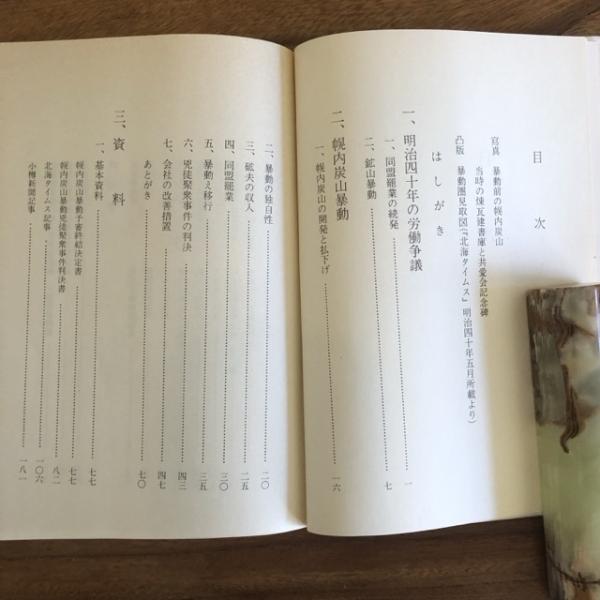 目次
寫真　暴動前の幌内炭山
当時の煉瓦建書庫と共愛会記念碑
凸版　暴動圏見取図(『北海タイムス』明治四十年五月所載より)
はしがき
一、明治四十年の労働争議
一、同盟罷業の続発………一
二、鉱山暴動………七
二、幌内炭山暴動
一、幌内炭山の開発と払下げ………一六
二、暴動の独自性………二〇
三、砿夫の収入………二五
四、同盟罷業………三〇
五、暴動え移行………三五
六、兇徒聚衆事件の判決………四三
七、会社の改善措置………四七
あとがき………七〇
三、資料
一、基本資料………七七
幌内炭山暴動予審終結決定書………七七
幌内炭山暴動兇徒聚衆事件判決書………八二
北海タイムス記事………一〇六
小樽新聞記事………一八一